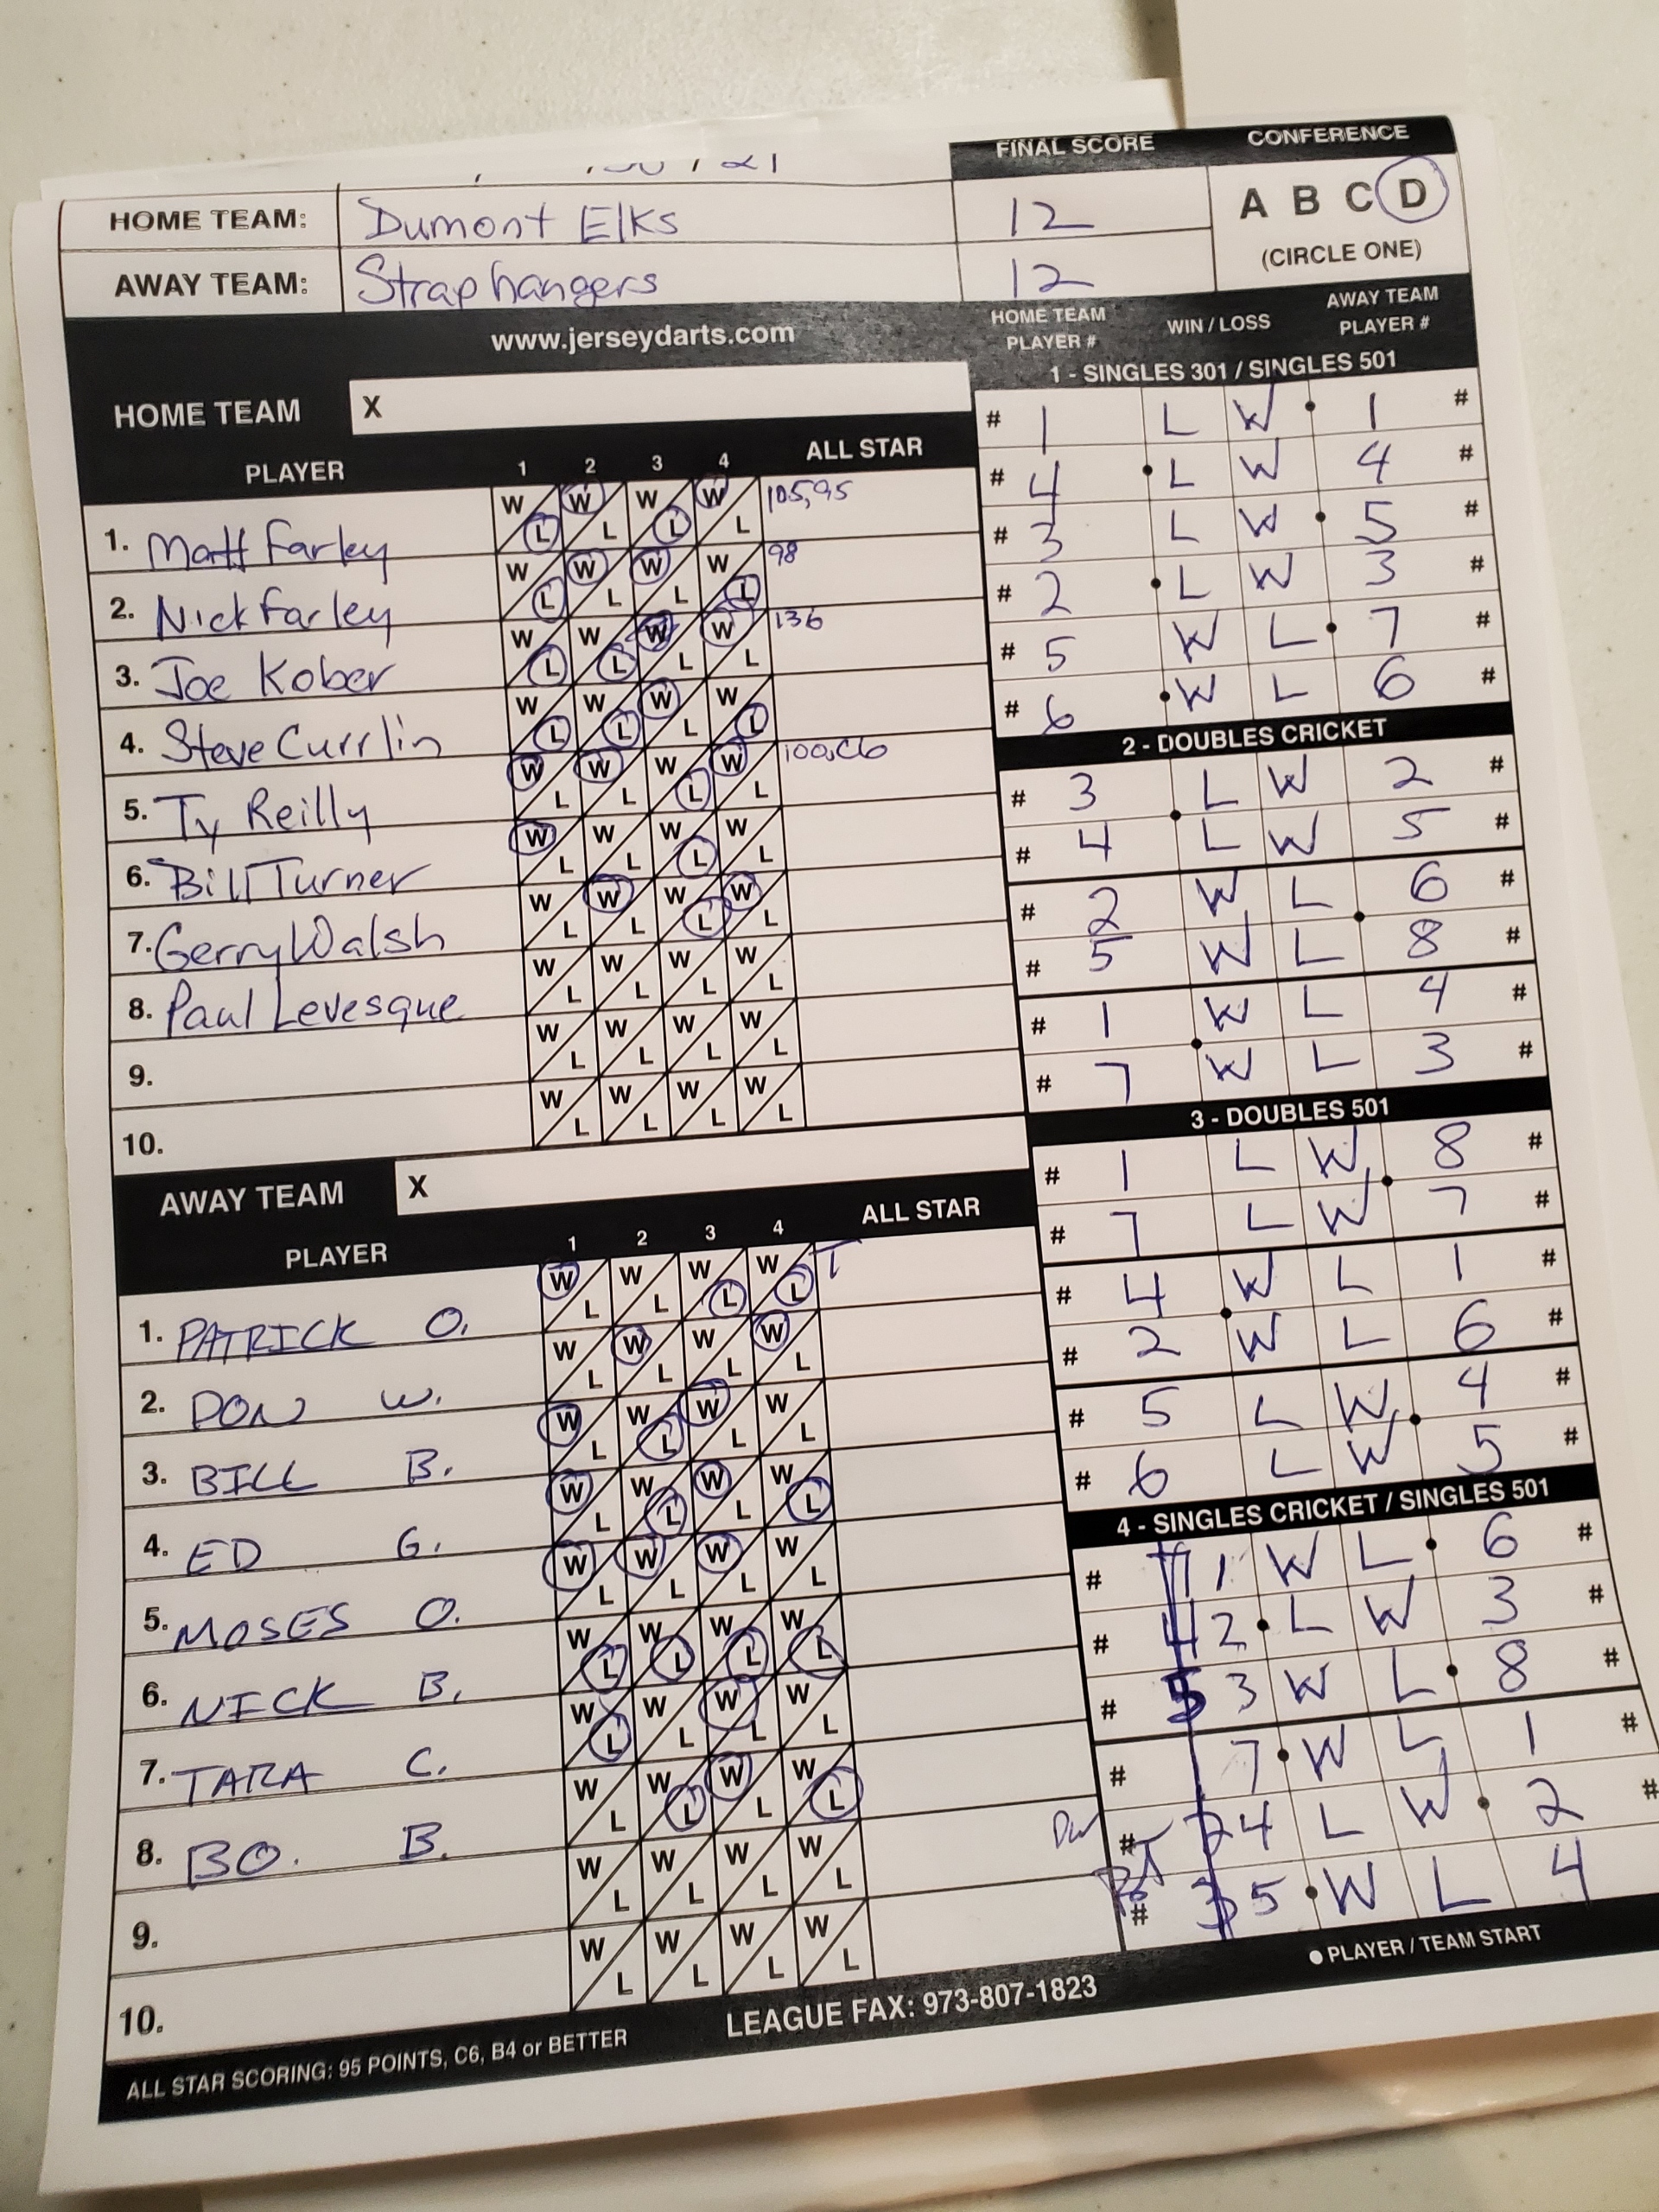 FINAL SCORE CONFERENCE
HOME TEAM: Dumont Elks 12 A B C D
AWAY TEAM: Straphangers 12 (CIRCLE ONE)
www.jerseydarts.com
HOME TEAM PLAYER # WIN / LOSS AWAY TEAM PLAYER #
HOME TEAM X
PLAYER 1 2 3 4 ALL STAR
1. Matt Farley W L W L W L W L 105,95
2. Nick Farley W L W L W L W L 98
3. Joe Kober W L W L W L W L 136
4. Steve Currlin W L W L W L W L
5. Ty Reilly W L W L W L W L 100,C6
6. Bill Turner W L W L W L W L
7. Gerry Walsh W L W L W L W L
8. Paul Levesque W L W L W L W L
9. W L W L W L W L
10. W L W L W L W L
AWAY TEAM X
PLAYER 1 2 3 4 ALL STAR
1. PATRICK O. W L W L W L W L
2. DON W. W L W L W L W L
3. BILL B. W L W L W L W L
4. ED G. W L W L W L W L
5. MOSES O. W L W L W L W L
6. NICK B. W L W L W L W L
7. TARA C. W L W L W L W L
8. BO. B. W L W L W L W L
9. W L W L W L W L
10. W L W L W L W L
1 - SINGLES 301 / SINGLES 501
# 1 L W 1 #
# 4 L W 4 #
# 3 L W 5 #
# 2 L W 3 #
# 5 W L 7 #
# 6 W L 6 #
2 - DOUBLES CRICKET
# 3 L W 2 #
# 4 L W 5 #
# 2 W L 6 #
# 5 W L 8 #
# 1 W L 4 #
# 7 W L 3 #
3 - DOUBLES 501
# 1 L W 8 #
# 7 L W 7 #
# 4 W L 1 #
# 2 W L 6 #
# 5 L W 4 #
# 6 L W 5 #
4 - SINGLES CRICKET / SINGLES 501
# 1 W L 6 #
# 2 L W 3 #
# 3 W L 8 #
# 7 W L 1 #
# 4 L W 2 #
# 5 W L 4
● PLAYER / TEAM START
ALL STAR SCORING: 95 POINTS, C6, B4 or BETTER LEAGUE FAX: 973-807-1823